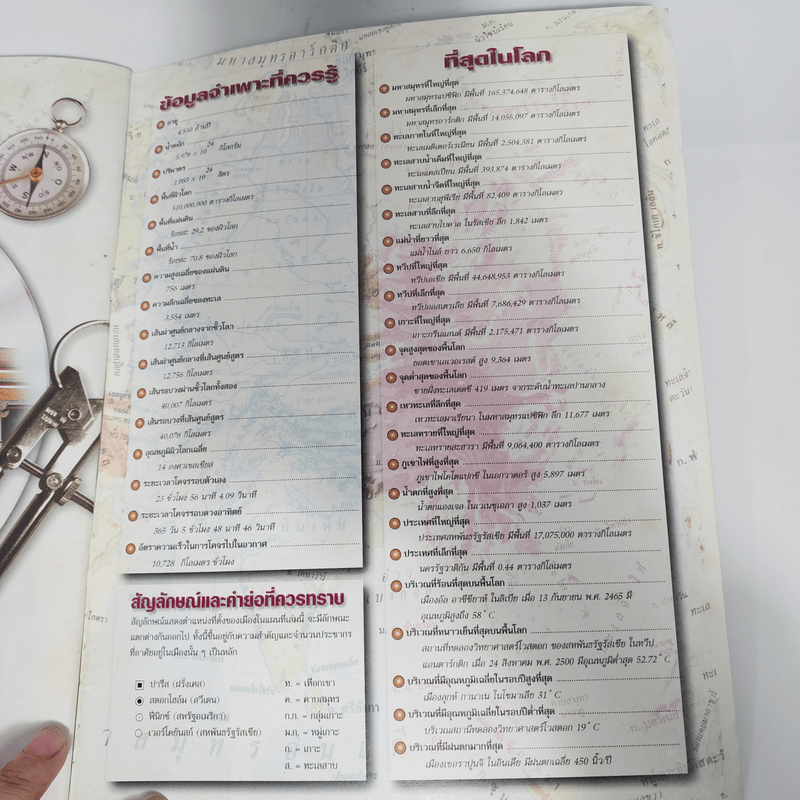 มหาสมุทรอาร์กติก
ข้อมูลจำเพาะที่ควรรู้
อายุ
4,550 ล้านปี
น้ำหนัก
5.976 x 10 24 กิโลกรัม
ปริมาตร
1.083 x 10 24 ลิตร
พื้นที่ผิวโลก
510,000,000 ตารางกิโลเมตร
พื้นที่แผ่นดิน
ร้อยละ 29.2 ของผิวโลก
พื้นที่น้ำ
ร้อยละ 70.8 ของผิวโลก
ความสูงเฉลี่ยของแผ่นดิน
756 เมตร
ความลึกเฉลี่ยของทะเล
3,554 เมตร
เส้นผ่าศูนย์กลางจากขั้วโลก
12,713 กิโลเมตร
เส้นผ่าศูนย์กลางที่เส้นศูนย์สูตร
12,756 กิโลเมตร
เส้นรอบวงผ่านขั้วโลกทั้งสอง
40,007 กิโลเมตร
เส้นรอบวงที่เส้นศูนย์สูตร
40,076 กิโลเมตร
อุณหภูมิผิวโลกเฉลี่ย
14 องศาเซลเซียส
ระยะเวลาโคจรรอบตัวเอง
23 ชั่วโมง 56 นาที 4.09 วินาที
ระยะเวลาโคจรรอบดวงอาทิตย์
365 วัน 5 ชั่วโมง 48 นาที 46 วินาที
อัตราความเร็วในการโคจรไปในอวกาศ
10,728 กิโลเมตร ชั่วโมง
สัญลักษณ์และคำย่อที่ควรทราบ
สัญลักษณ์แสดงตำแหน่งที่ตั้งของเมืองในแผนที่เล่มนี้ จะมีลักษณะ
แตกต่างกันออกไป ทั้งนี้ขึ้นอยู่กับความสำคัญและจำนวนประชากร
ที่อาศัยอยู่ในเมืองนั้น ๆ เป็นหลัก
ปารีส (ฝรั่งเศส)
สตอกโฮล์ม (สวีเดน)
ฟีนิกซ์ (สหรัฐอเมริกา)
เวอร์โคยันสก์ (สหพันธรัฐรัสเซีย)
ท. = เทือกเขา
ค. = คาบสมุทร
ก.ก. = กลุ่มเกาะ
ม.ก. = หมู่เกาะ
ก. = เกาะ
ส. = ทะเลสาบ
ที่สุดในโลก
มหาสมุทรที่ใหญ่ที่สุด
มหาสมุทรแปซิฟิก มีพื้นที่ 165,374,648 ตารางกิโลเมตร
มหาสมุทรที่เล็กที่สุด
มหาสมุทรอาร์กติก มีพื้นที่ 14,055,097 ตารางกิโลเมตร
ทะเลภายในที่ใหญ่ที่สุด
ทะเลเมดิเตอร์เรเนียน มีพื้นที่ 2,504,381 ตารางกิโลเมตร
ทะเลสาบน้ำเค็มที่ใหญ่ที่สุด
ทะเลแคสเปียน มีพื้นที่ 393,874 ตารางกิโลเมตร
ทะเลสาบน้ำจืดที่ใหญ่ที่สุด
ทะเลสาบสุพีเรีย มีพื้นที่ 82,409 ตารางกิโลเมตร
ทะเลสาบที่ลึกที่สุด
ทะเลสาบไบคาล ในรัสเซีย ลึก 1,842 เมตร
แม่น้ำที่ยาวที่สุด
แม่น้ำไนล์ ยาว 6,650 กิโลเมตร
ทวีปที่ใหญ่ที่สุด
ทวีปเอเชีย มีพื้นที่ 44,648,953 ตารางกิโลเมตร
ทวีปที่เล็กที่สุด
ทวีปออสเตรเลีย มีพื้นที่ 7,686,429 ตารางกิโลเมตร
เกาะที่ใหญ่ที่สุด
เกาะกรีนแลนด์ มีพื้นที่ 2,175,471 ตารางกิโลเมตร
จุดสูงสุดของพื้นโลก
ยอดเขาเอเวอเรสต์ สูง 9,364 เมตร
จุดต่ำสุดของพื้นโลก
ชายฝั่งทะเลเดดซี 419 เมตร จากระดับน้ำทะเลปานกลาง
เหวทะเลที่ลึกที่สุด
เหวทะเลมาเรียนา ในมหาสมุทรแปซิฟิก ลึก 11,677 เมตร
ทะเลทรายที่ใหญ่ที่สุด
ทะเลทรายสะฮารา มีพื้นที่ 9,064,400 ตารางกิโลเมตร
ภูเขาไฟที่สูงที่สุด
ภูเขาไฟโคโตแปกซี ในเอกวาดอร์ สูง 5,897 เมตร
น้ำตกที่สูงที่สุด
น้ำตกแองเจล ในเวเนซุเอลา สูง 1,037 เมตร
ประเทศที่ใหญ่ที่สุด
ประเทศสหพันธรัฐรัสเซีย มีพื้นที่ 17,075,000 ตารางกิโลเมตร
ประเทศที่เล็กที่สุด
นครรัฐวาติกัน มีพื้นที่ 0.44 ตารางกิโลเมตร
บริเวณที่ร้อนที่สุดบนพื้นโลก
เมืองอัล อาซีซียาห์ ในลิเบีย เมื่อ 13 กันยายน พ.ศ. 2465 มี
อุณหภูมิสูงถึง 58° C
บริเวณที่หนาวเย็นที่สุดบนพื้นโลก
สถานที่ทดลองวิทยาศาสตร์โวสตอก ของสหพันธรัฐรัสเซีย ในทวีป
แอนตาร์กติก เมื่อ 24 สิงหาคม พ.ศ. 2500 มีอุณหภูมิต่ำสุด 52.72° C
บริเวณที่มีอุณหภูมิเฉลี่ยในรอบปีสูงที่สุด
เมืองลุกห์ กานาเน ในโซมาเลีย 31° C
บริเวณที่มีอุณหภูมิเฉลี่ยในรอบปีต่ำที่สุด
บริเวณสถานีทดลองวิทยาศาสตร์โวสตอก 19° C
บริเวณที่มีฝนตกมากที่สุด
เมืองเชอราปุนจิ ในอินเดีย มีฝนตกเฉลี่ย 450 นิ้ว/ปี